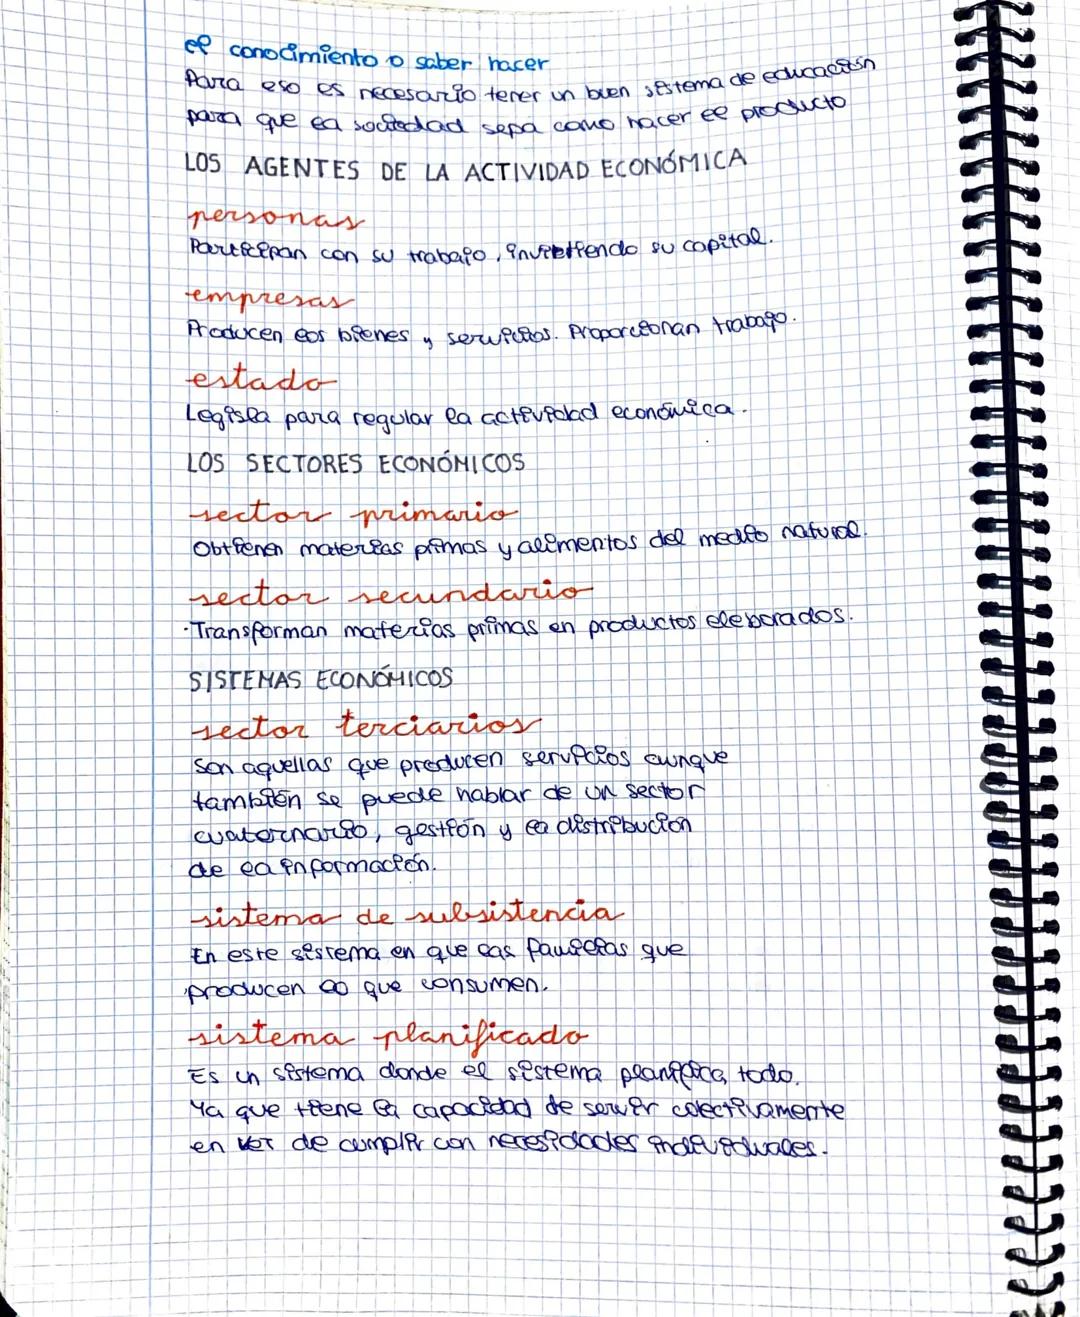 el conocimiento o saber hacer
Para eso es necesario tener un buen sistema de educación
para que la sociedad sepa como hacer el producto
LOS AGENTES DE LA ACTIVIDAD ECONÓMICA
personas
Participan con su trabajo, invirtiendo su capital.
empresas
Producen los bienes y servicios. Proporcionan trabajo.
estado
Legisla para regular la actividad económica.
LOS SECTORES ECONÓMICOS
sector primario
Obtienen materias primas y alimentos del medio natural.
sector secundario
·Transforman materias primas en productos eleborados.
SISTEMAS ECONÓMICOS
sector terciarios
Son aquellas que producen servicios aunque
también se puede hablar de un sector
cuaternario, gestión y la distribución
de la información.
sistema de subsistencia
En este sistema en que las familias que
producen lo que consumen.
sistema planificado
Es un sistema donde el sistema planifica todo.
Ya que tiene la capacidad de servir colectivamente
en vez de cumplir con necesidades individuales.